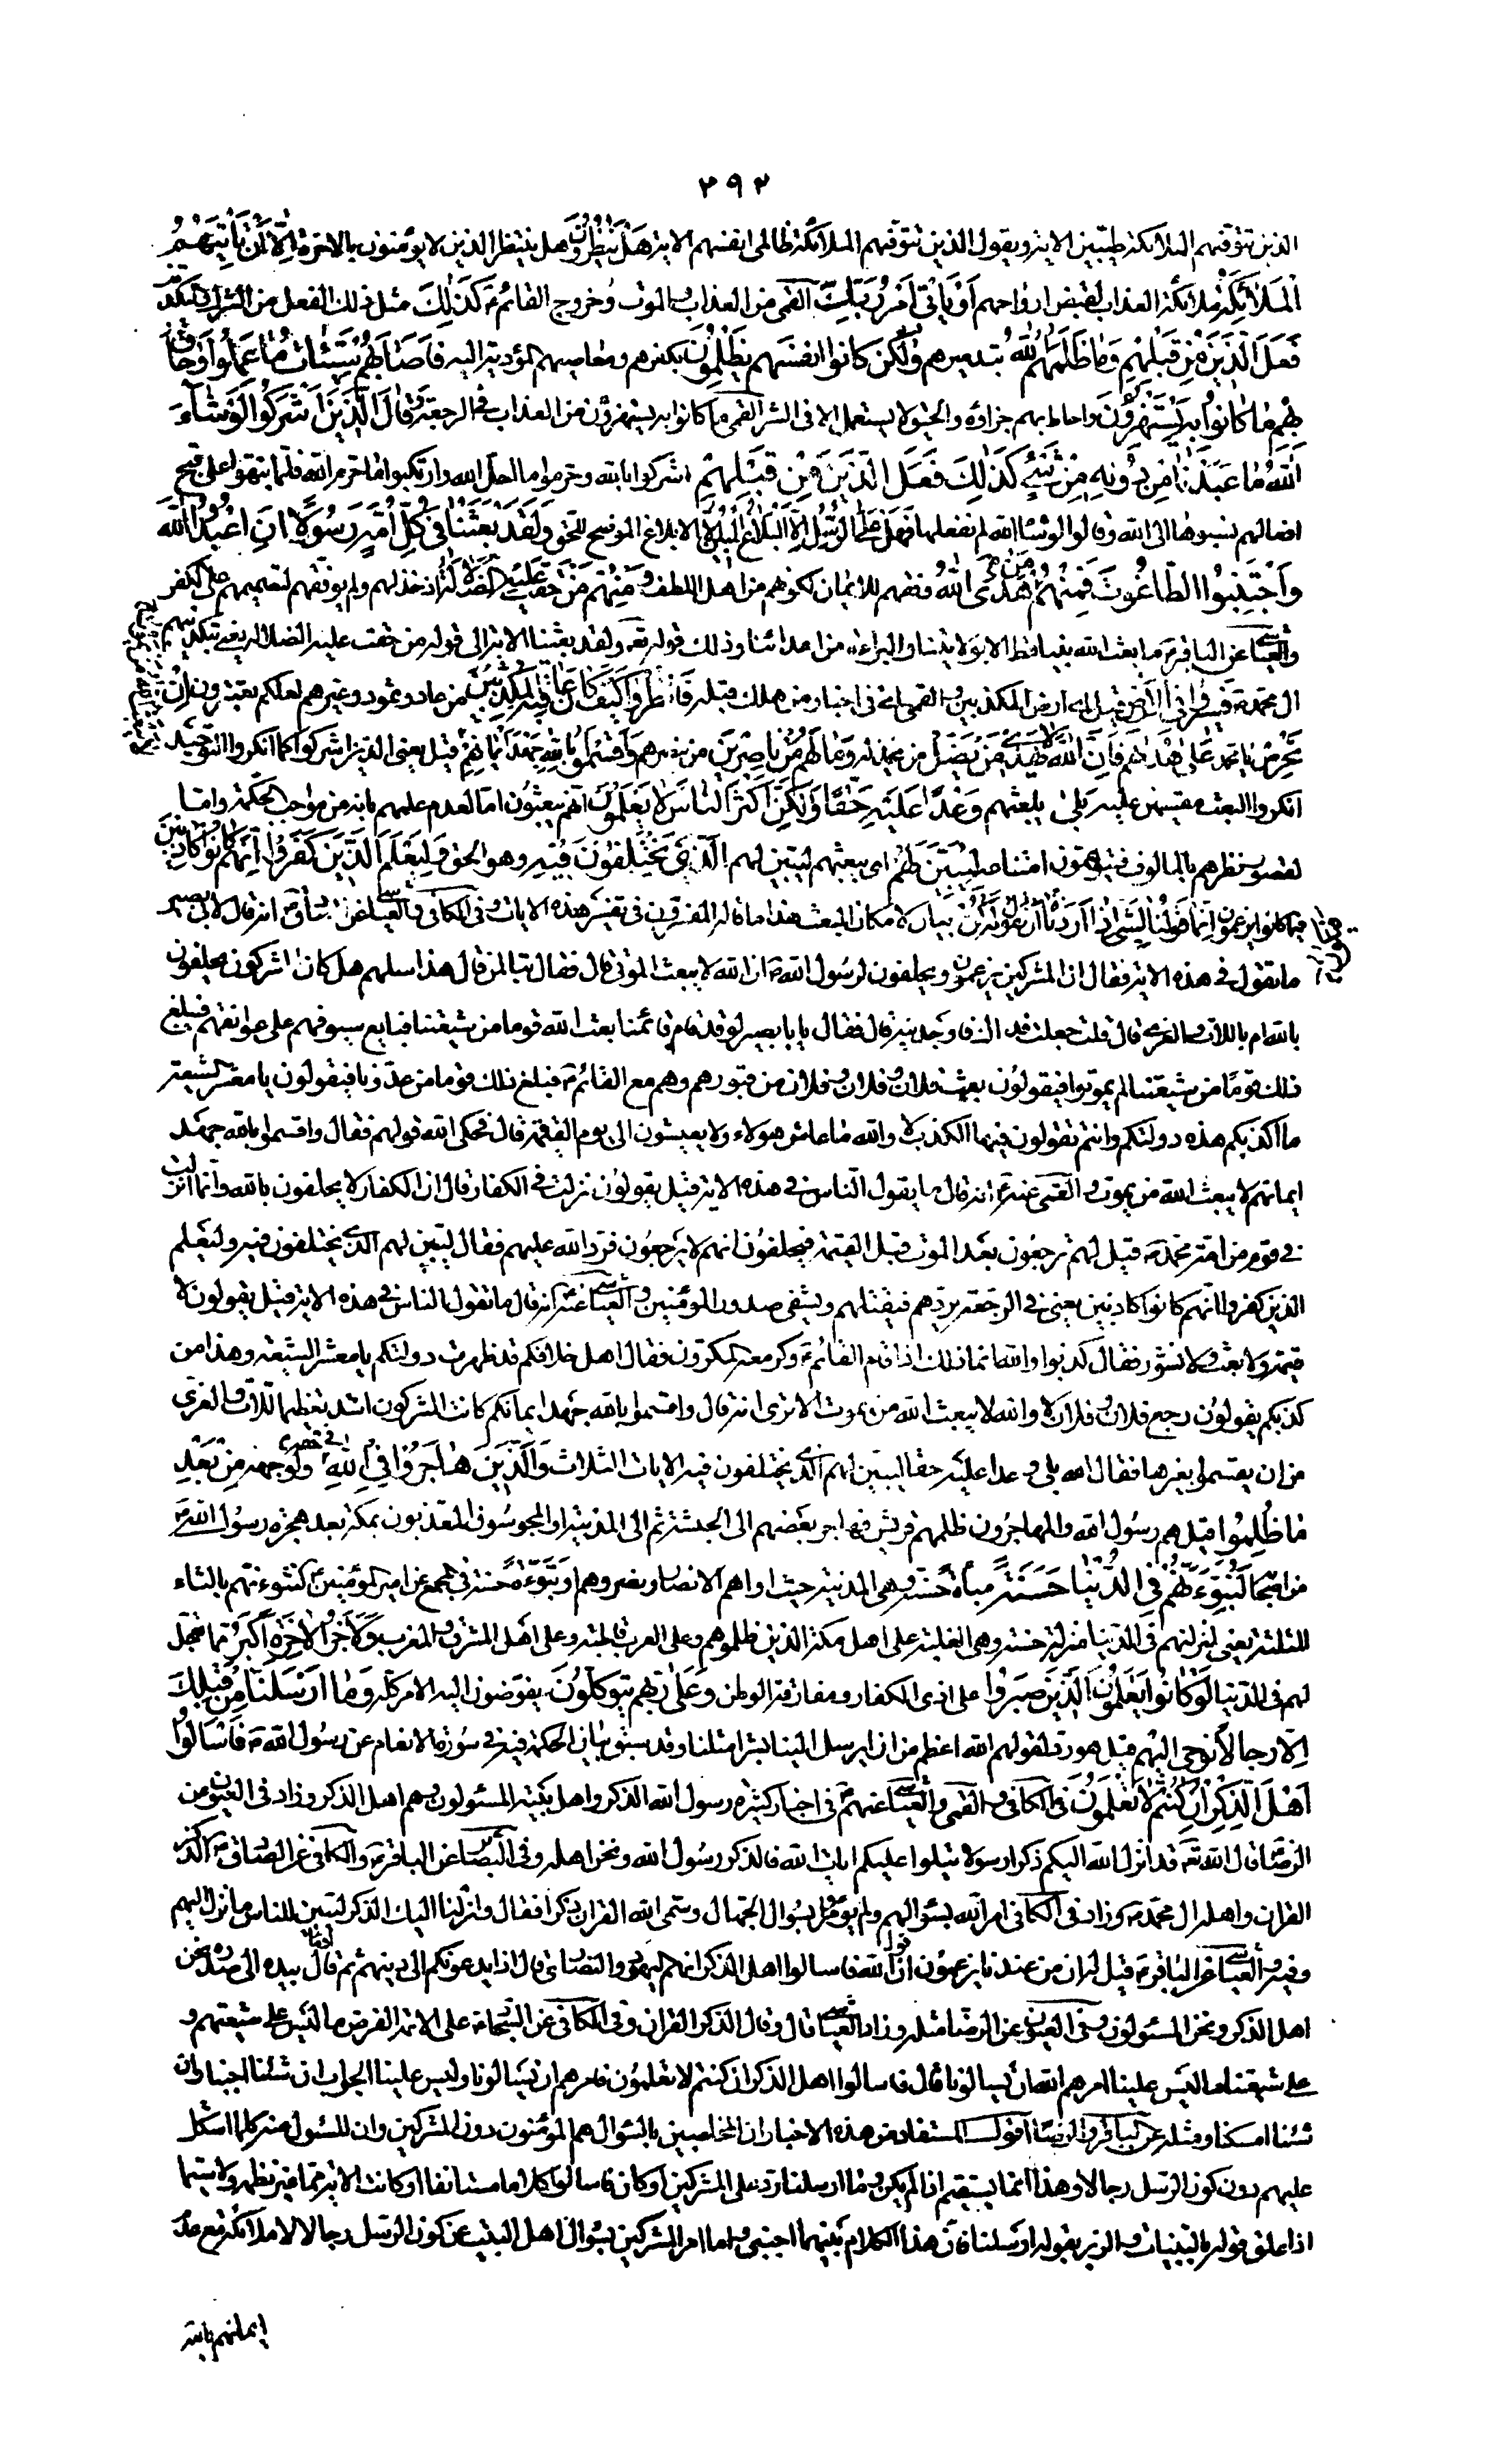 ٢٩٢
الذين تتوفيهم الملائكة طيبين الاية ويقول الذين تتوفيهم الملائكة ظالمى انفسهم الاية هَلْ يَنْظُرُونَ هل ينتظر الذين لا يؤمنون بالاخرة اِلَّا اَنْ تَأْتِيَهُمُ
الْمَلَائِكَةُ ملائكة العذاب لقبض ارواحهم اَوْ يَأْتِىَ اَمْرُ رَبِّكَ القمى من العذاب والموت وخروج القائم ع كَذَلِكَ مثل ذلك الفعل من الشرك والتكذيب
فَعَلَ الَّذِينَ مِنْ قَبْلِهِمْ وَمَا ظَلَمَهُمُ اللهُ بتدميرهم وَلَكِنْ كَانُوا اَنْفُسَهُمْ يَظْلِمُونَ بكفرهم ومعاصيهم المؤدية اليه فَاَصَابَهُمْ سَيِّئَاتُ مَا عَمِلُوا وَحَاقَ
بِهِمْ مَا كَانُوا بِهِ يَسْتَهْزِؤُنَ واحاط بهم جزاؤه والحيق لا يستعمل الا فى الشر القمى ما كانوا به يستهزؤن من العذاب فى الرجعة وَقَالَ الَّذِينَ اَشْرَكُوا لَوْ شَاءَ
اللهُ مَا عَبَدْنَا مِنْ دُونِهِ مِنْ شَىْءٍ كَذَلِكَ فَعَلَ الَّذِينَ مِنْ قَبْلِهِمْ اشركوا بالله وحرموا ما احل الله وارتكبوا ما حرم الله فلما نبهوا على قبح
افعالهم نسبوها الى الله وقالوا لو شاء الله لم نفعلها فَهَلْ عَلَى الرُّسُلِ اِلَّا الْبَلَاغُ الْمُبِينُ الا بلاغ الموضح للحق وَلَقَدْ بَعَثْنَا فِى كُلِّ اُمَّةٍ رَسُولًا اَنِ اعْبُدُوا اللهَ
وَاجْتَنِبُوا الطَّاغُوتَ فَمِنْهُمْ مَنْ هَدَى اللهُ وفقهم للايمان لكونهم من اهل اللطف وَمِنْهُمْ مَنْ حَقَّتْ عَلَيْهِ الضَّلَالَةُ اذ خذلهم ولم يوفقهم لتصميمهم على الكفر
والعياشى عن الباقر ع ما بعث الله نبيا قط الا بولايتنا والبراءة من اعدائنا وذلك قوله تع ولقد بعثنا الاية الى قوله من حقت عليه الضلالة يعنى بتكذيبهم
ال محمد ص فَسِيرُوا فِى الْاَرْضِ قيل اى ارض المكذبين والقمى اى فى اخبار من هلك قبله فَانْظُرُوا كَيْفَ كَانَ عَاقِبَةُ الْمُكَذِّبِينَ من عاد وثمود وغيرهم لعلكم تعتبرون اِنْ
تَحْرِصْ يا محمد عَلَى هُدَاهُمْ فَاِنَّ اللهَ لَا يَهْدِى مَنْ يُضِلُّ من يخذله وَمَا لَهُمْ مِنْ نَاصِرِينَ من ينصرهم وَاَقْسَمُوا بِاللهِ جَهْدَ اَيْمَانِهِمْ قيل يعنى الذين اشركوا كما انكروا التوحيد
انكروا البعث مقسمين عليه بَلَى يبعثهم وَعْدًا عَلَيْهِ حَقًّا وَلَكِنَّ اَكْثَرَ النَّاسِ لَا يَعْلَمُونَ انهم يبعثون اما لعدم علمهم بانه من مواجب الحكمة واما
لقصور نظرهم بالمالوف فيتوهمون امتناعه لِيُبَيِّنَ لَهُمُ اى يبعثهم ليبين لهم الَّذِى يَخْتَلِفُونَ فِيهِ وهو الحق وَلِيَعْلَمَ الَّذِينَ كَفَرُوا اَنَّهُمْ كَانُوا كَاذِبِينَ
فيما كانوا يزعمون اِنَّمَا قَوْلُنَا لِشَىْءٍ اِذَا اَرَدْنَاهُ اَنْ نَقُولَ لَهُ كُنْ بيان لامكان البعث هذا ما قاله المفسرون فى تفسير هذه الايات وفى الكافى والعياشى عن الصادق ع انه قال لابى بصير
ما تقول فى هذه الاية فقال ان المشركين يزعمون ويحلفون لرسول الله ص ان الله لا يبعث الموتى قال فقال تبا لمن قال هذا سلهم هل كان المشركون يحلفون
بالله ام باللات والعزى قال قلت جعلت فداك فاوجدنيه قال فقال يا با بصير لو قد قام قائمنا بعث الله قوما من شيعتنا قبايع سيوفهم على عواتقهم فيبلغ
ذلك قوما من شيعتنا لم يموتوا فيقولون بعث فلان وفلان وفلان من قبورهم وهم مع القائم ع فيبلغ ذلك قوما من عدونا فيقولون يا معشر الشيعة
ما اكذبكم هذه دولتكم وانتم تقولون فيها الكذب لا والله ما عاش هولاء ولا يعيشون الى يوم القيمة قال فحكى الله قولهم فقال واقسموا بالله جهد
ايمانهم لا يبعث الله من يموت والقمى عنه ع انه قال ما يقول الناس فى هذه الاية قيل يقولون نزلت فى الكفار قال ان الكفار لا يحلفون بالله وانما انزلت
فى قوم من امة محمد ص قيل لهم ترجعون بعد الموت قبل القيمة فيحلفون انهم لا يرجعون فرد الله عليهم فقال ليبين لهم الذى يختلفون فيه وليعلم
الذين كفروا انهم كانوا كاذبين يعنى فى الرجعة يردهم فيقتلهم ويشفى صدور المؤمنين والعياشى عنه ع انه قال ما تقول الناس فى هذه الاية قيل يقولون لا
قيمة ولا بعث ولا نشور فقال كذبوا والله انما ذلك اذا قام القائم ع وكر معه المكرون فقال اهل خلافكم قد ظهرت دولتكم يا معشر الشيعة وهذا من
كذبكم يقولون رجع فلان وفلان لا والله لا يبعث الله من يموت الا ترى انه قال واقسموا بالله جهد ايمانكم كانت المشركون اشد تعظيما للات والعزى
من ان يقسموا بغيرها فقال الله بلى وعدا عليه حقا ليبين لهم الذى يختلفون فيه الايات الثلاث وَالَّذِينَ هَاجَرُوا فِى اللهِ اى فى حقه ولوجهه مِنْ بَعْدِ
مَا ظُلِمُوا قيل هم رسول الله والمهاجرون ظلمهم قريش فهاجر بعضهم الى الحبشة ثم الى المدينة او المحبوسون المعذبون بمكة بعد هجرة رسول الله ص
من اصحابه لَنُبَوِّئَنَّهُمْ فِى الدُّنْيَا حَسَنَةً مباءة حسنة وهى المدينة حيث اواهم الانصار ونصروهم او تبوئة حسنة فى المجمع عن امير المؤمنين ع لنثوئنهم بالثاء
المثلثة يعنى لننزلنهم فى الدنيا منزلة حسنة وهى الغلبة على اهل مكة الذين ظلموهم وعلى العرب قاطبة وعلى اهل المشرق والمغرب وَلَاَجْرُ الْاَخِرَةِ اَكْبَرُ مما يعجل
لهم فى الدنيا لَوْ كَانُوا يَعْلَمُونَ اَلَّذِينَ صَبَرُوا على اذى الكفار ومفارقة الوطن وَعَلَى رَبِّهِمْ يَتَوَكَّلُونَ يفوضون اليه الامر كله وَمَا اَرْسَلْنَا مِنْ قَبْلِكَ
اِلَّا رِجَالًا نُوحِى اِلَيْهِمْ قيل هو رد لقولهم الله اعظم من ان يرسل الينا بشرا مثلنا وقد سبق بيان الحكمة فيه فى سورة الانعام عن رسول الله ص فَاسْاَلُوا
اَهْلَ الذِّكْرِ اِنْ كُنْتُمْ لَا تَعْلَمُونَ فى الكافى والقمى والعياشى عنهم ع فى اخبار كثيرة رسول الله الذكر واهل بيته المسئولون وهم اهل الذكر وزاد فى العيون عن
الرضا ع قال الله تع قد انزل الله اليكم ذكرا رسولا يتلوا عليكم ايات الله فالذكر رسول الله ونحن اهله وفى البصائر عن الباقر ع والكافى عن الصادق ع الذكر
القران واهله ال محمد ص وزاد فى الكافى امر الله بسئوالهم ولم يؤمروا بسوال الجهال وسمى الله القران ذكرا فقال وانزلنا اليك الذكر لتبين للناس ما نزل اليهم
وفيه والعياشى عن الباقر ع قيل له ان من عندنا يزعمون ان قول الله فاسالوا اهل الذكر انهم اليهود والنصارى قال اذا يدعونكم الى دينهم ثم قال بيده الى صدره نحن
اهل الذكر ونحن المسئولون وفى العيون عن الرضا مثله وزاد العياشى قال وقال الذكر القران وفى الكافى عن السجاد ع على الائمة من الفرض ما ليس على شيعتهم و
على شيعتنا ما ليس علينا امرهم الله ان يسالونا قال فاسالوا اهل الذكر ان كنتم لا تعلمون فامرهم ان يسالونا وليس علينا الجواب ان شئنا اجبنا وان
شئنا امسكنا ومثله عن الباقر والرضا ع اقول المستفاد من هذه الاخبار ان المخاطبين بالسئوال هم المؤمنون دون المشركين وان المسئول عنه كلما اشكل
عليهم دون كون الرسل رجالا وهذا انما يستقيم اذا لم يكن وما ارسلنا ردا على المشركين او كان فاسالوا كلاما مستانفا او كانت الاية مما غير نظمه ولا سيما
اذا علق قوله بالبينات والزبر بقوله ارسلنا فان هذا الكلام بينهما اجنبى واما امر المشركين بسئوال اهل البيت عن كون الرسل رجالا لا ملائكة مع عدم
ايمانهم بالله